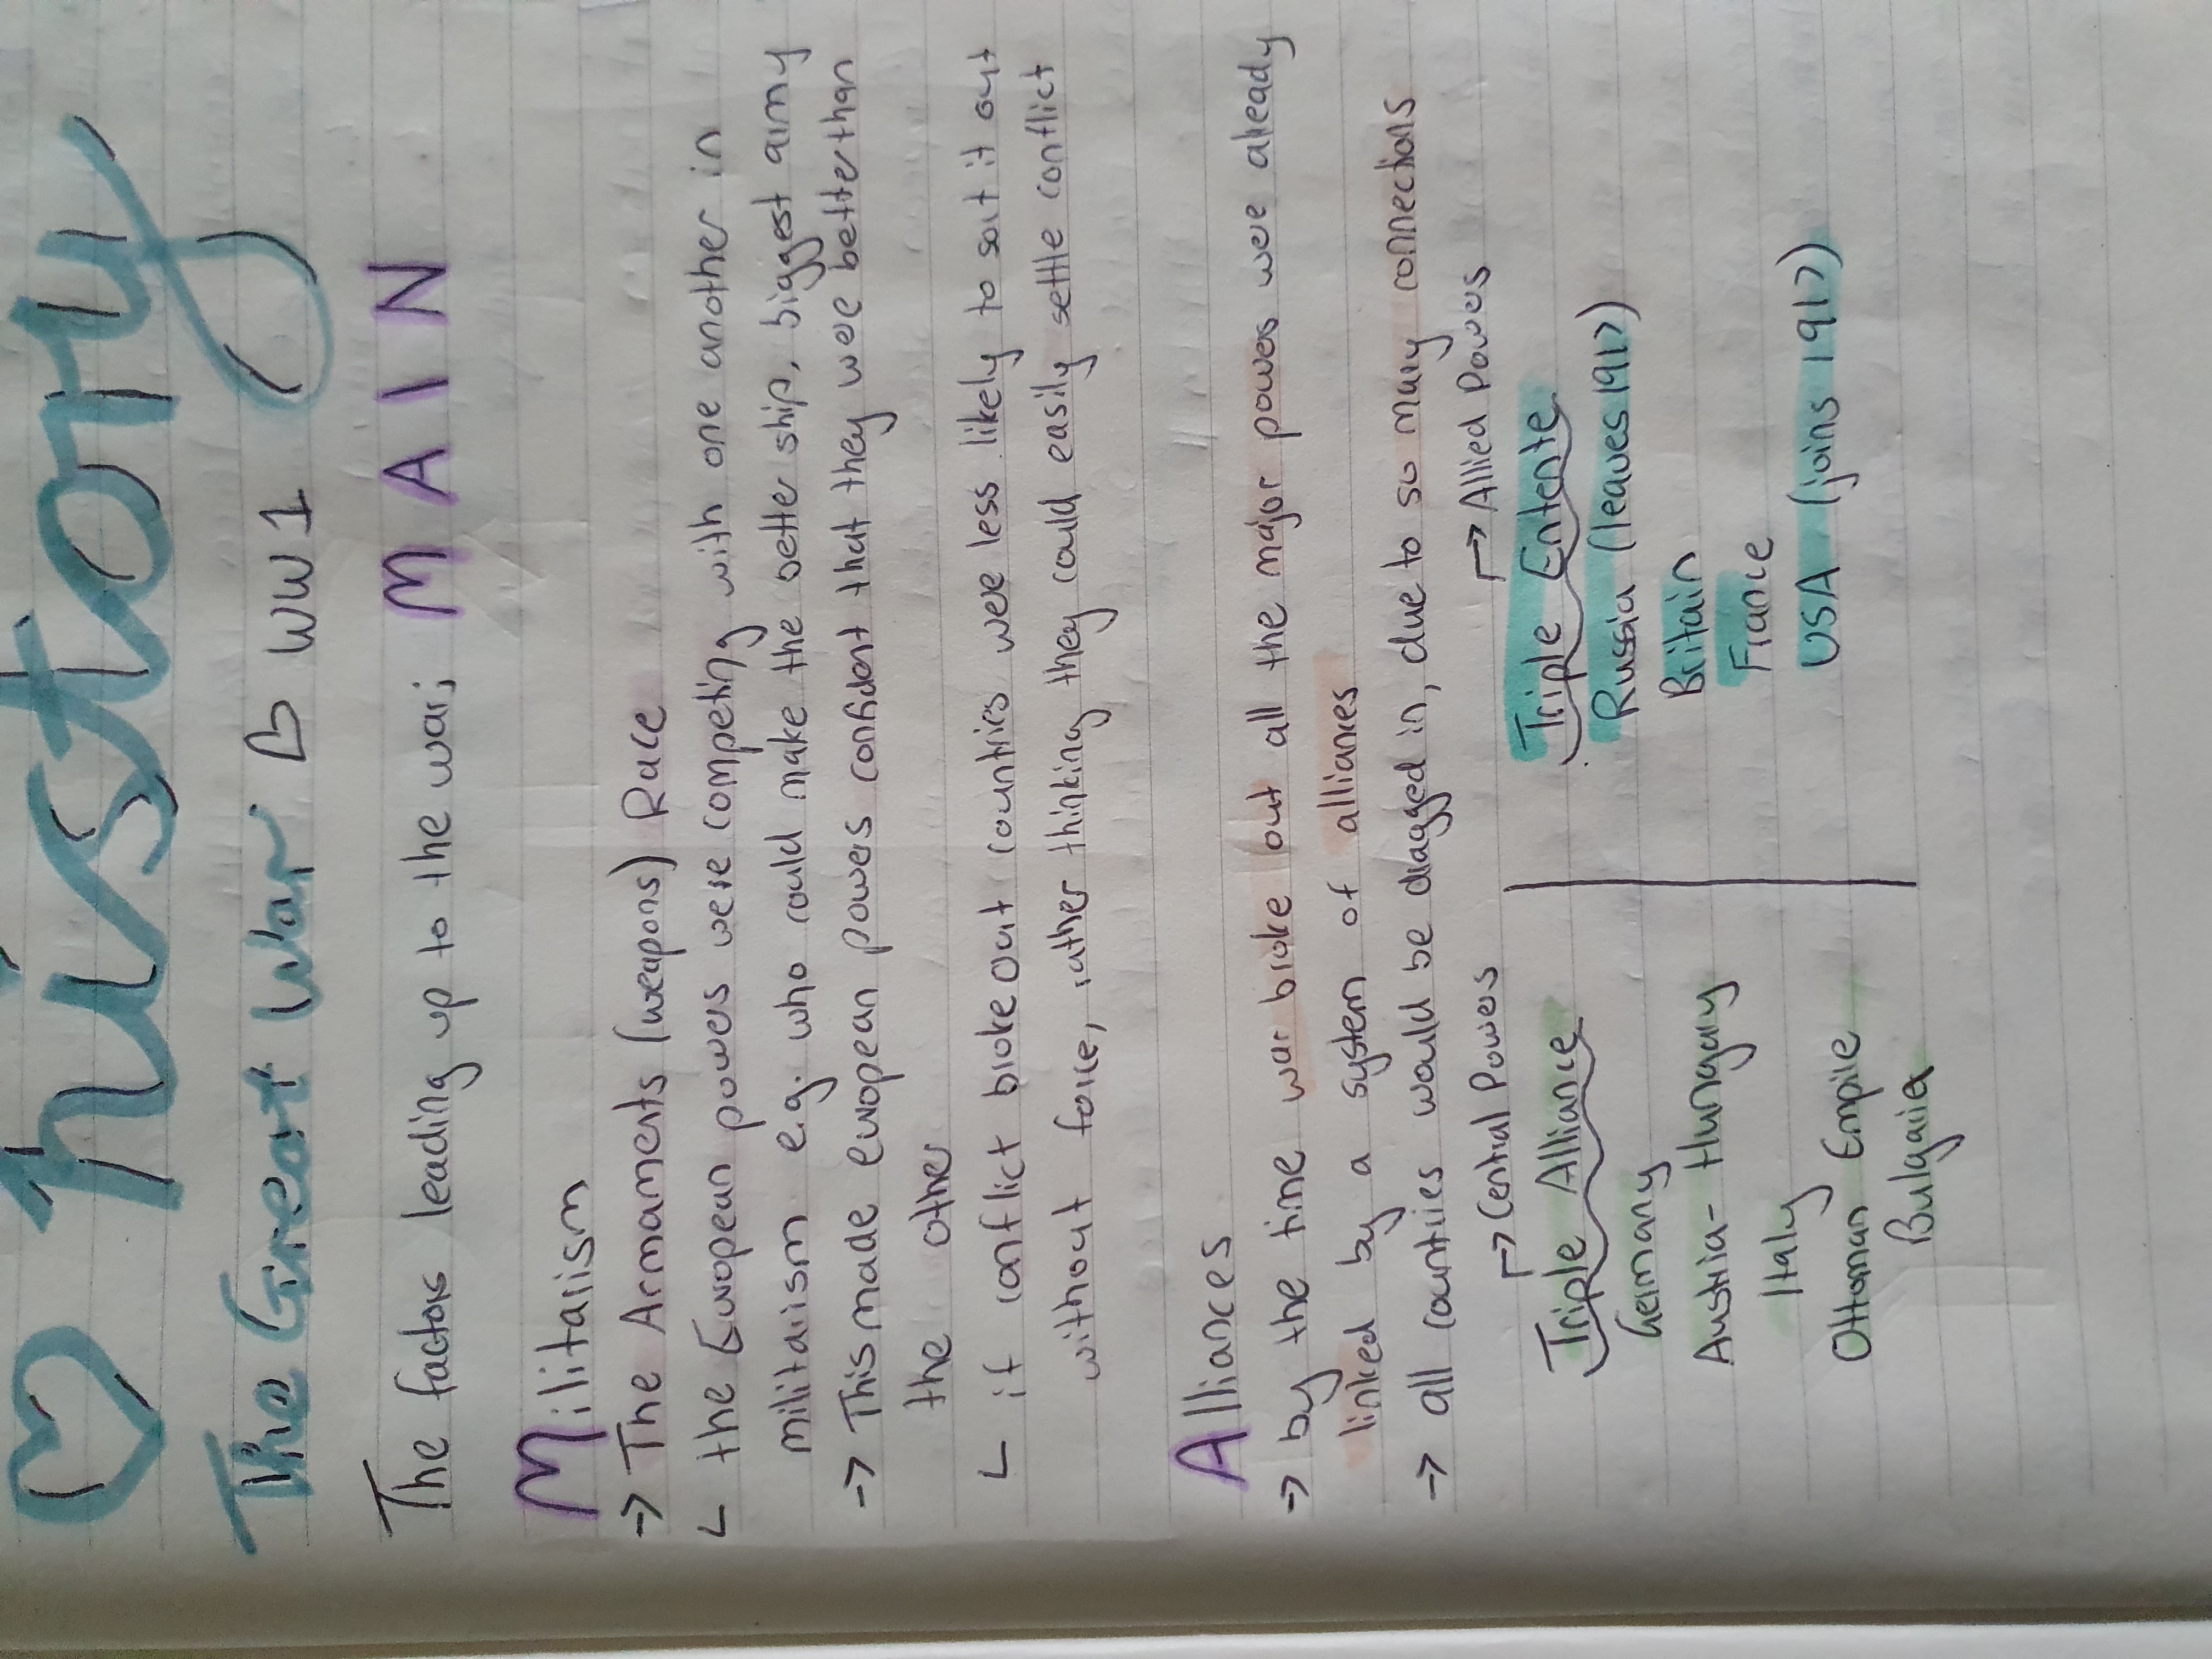 ♡ history
The Great War ♡ WW1
The factors leading up to the war; MAIN
Militarism
→ The Armaments (weapons) Race
↳ the European powers were competing with one another in
militarism e.g. who could make the better ship, biggest army
→ This made european powers confident that they were better than
the other
↳ if conflict broke out countries were less likely to sort it out
without force, rather thinking they could easily settle conflict
Alliances
→ by the time war broke out all the major powers were already
linked by a system of alliances
→ all countries would be dragged in, due to so many connections
↱ Central Powers
Triple Alliance
Germany
Austria-Hungary
Italy
Ottoman Empire
Bulgaria
↱ Allied Powers
Triple Entente
Russia (leaves 1917)
Britain
France
USA (joins 1917)